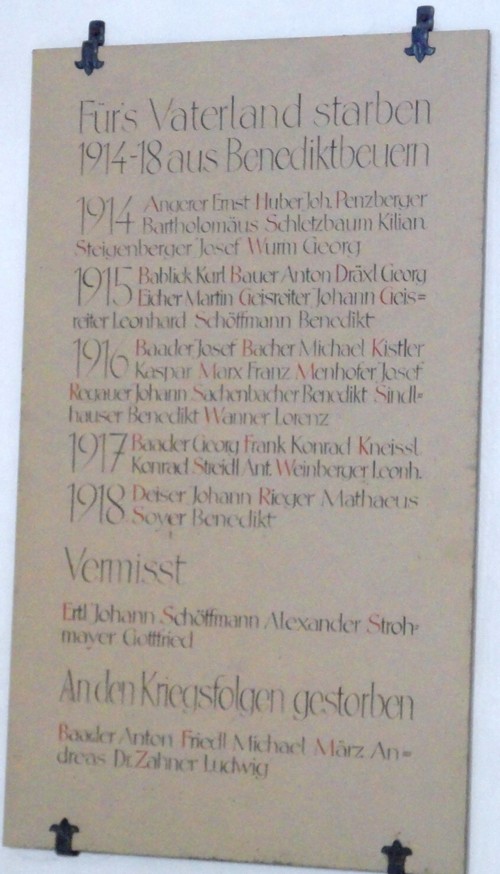 Für's Vaterland starben
1914-18 aus Benediktbeuern
1914 Angerer Ernst Huber Joh. Penzberger
Bartholomäus Schletzbaum Kilian
Steigenberger Josef Wurm Georg
1915 Bablick Karl Bauer Anton Dräxl Georg
Eicher Martin Geisreiter Johann Geis=
reiter Leonhard Schöffmann Benedikt
1916 Baader Josef Bacher Michael Kistler
Kaspar Marx Franz Menhofer Josef
Regauer Johann Sachenbacher Benedikt Sindl=
hauser Benedikt Wanner Lorenz
1917 Baader Georg Frank Konrad Kneissl
Konrad Streidl Ant. Weinberger Leonh.
1918 Deiser Johann Rieger Mathaeus
Soyer Benedikt
Vermisst
Ertl Johann Schöffmann Alexander Stroh=
mayer Gottfried
An den Kriegsfolgen gestorben
Baader Anton Friedl Michael März An=
dreas Dr. Zahner Ludwig